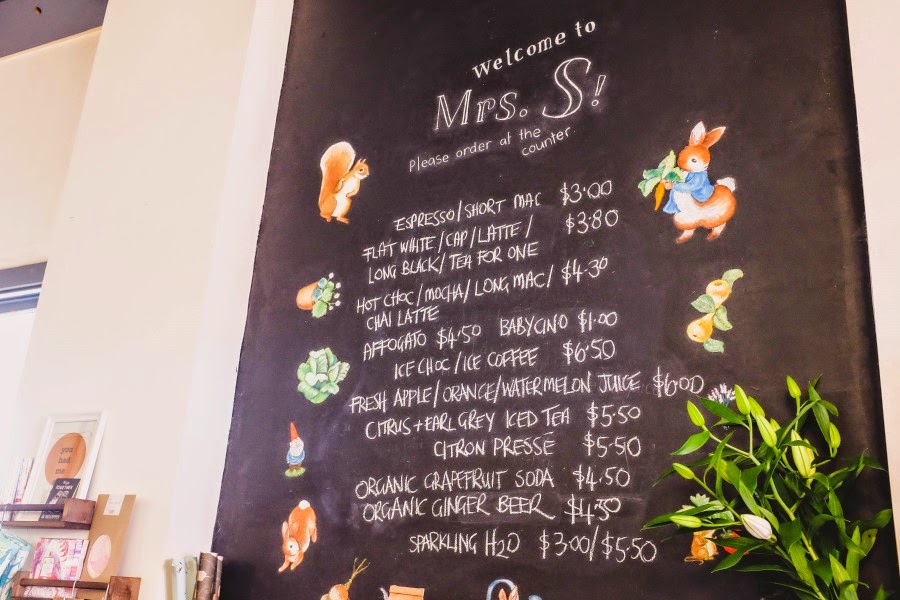 welcome to
Mrs. S!
Please order at the counter
ESPRESSO/SHORT MAC $3.00
FLAT WHITE/CAP/LATTE/ $3.80
LONG BLACK/TEA FOR ONE
HOT CHOC/MOCHA/LONG MAC/ $4.30
CHAI LATTE
AFFOGATO $4.50 BABYCINO $1.00
ICE CHOC/ICE COFFEE $6.50
FRESH APPLE/ORANGE/WATERMELON JUICE $6.00
CITRUS+EARL GREY ICED TEA $5.50
CITRON PRESSÉ $5.50
ORGANIC GRAPEFRUIT SODA $4.50
ORGANIC GINGER BEER $4.50
SPARKLING H2O $3.00/$5.50
you
had
me